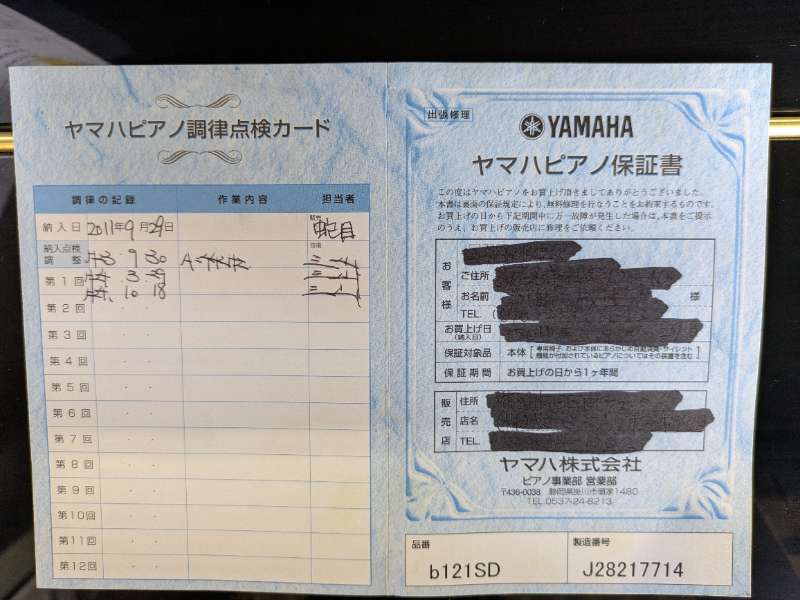 ヤマハピアノ調律点検カード
調律の記録 作業内容 担当者
納入日 2011年9月29日 蛇目
納入点検
調整 9 30
第1回 3 29
第2回 10 18
第3回
第4回
第5回
第6回
第7回
第8回
第9回
第10回
第11回
第12回
出張修理
YAMAHA
ヤマハピアノ保証書
この度はヤマハピアノをお買上げ頂きましてありがとうございました。
本書は裏面の保証規定により、無料修理を行なうことをお約束するものです。
お買上げの日から下記期間中に万一故障が発生した場合は、本書をご提示
のうえ、お買上げの販売店に修理をご依頼ください。
お客様
ご住所
お名前 様
TEL. (
お買上げ日
(納入日)
保証対象品 本体 [専用椅子、および本体にあらかじめ自動演奏・サイレント
機能が付加されているピアノについてはその装置を含む]
保証期間 お買上げの日から1ヶ年間
販売店
住所
店名
TEL.
ヤマハ株式会社
ピアノ事業部 営業部
〒436-0038 静岡県掛川市領家1480
TEL.0537-24-8213
品番 製造番号
b121SD J28217714